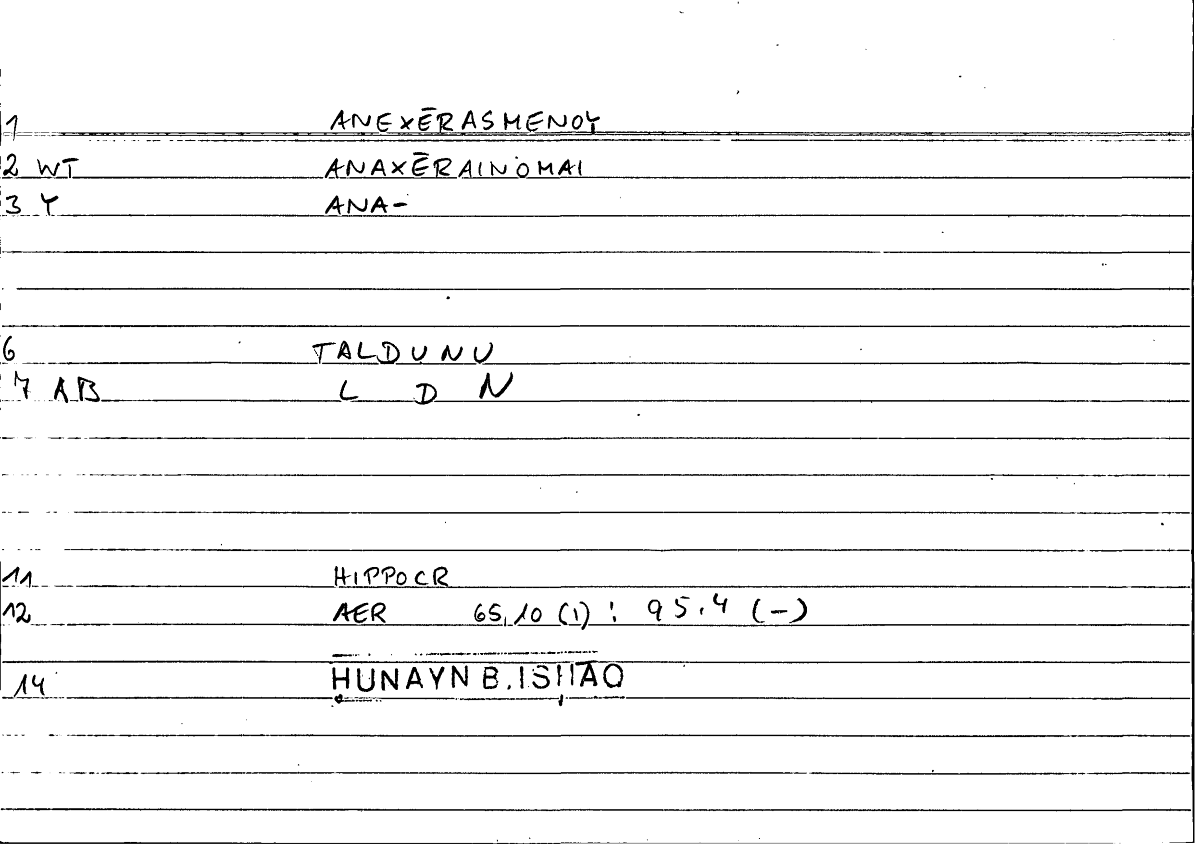 1 ANEXĒRASMENOY
2 WT ANAXĒRAINOMAI
3 Y ANA-
6 TALDUNU
7 AB L D N
11 HIPPOCR
12 AER 65,10 (1) : 95.4 (-)
14 ḤUNAYN B. ISḤĀQ